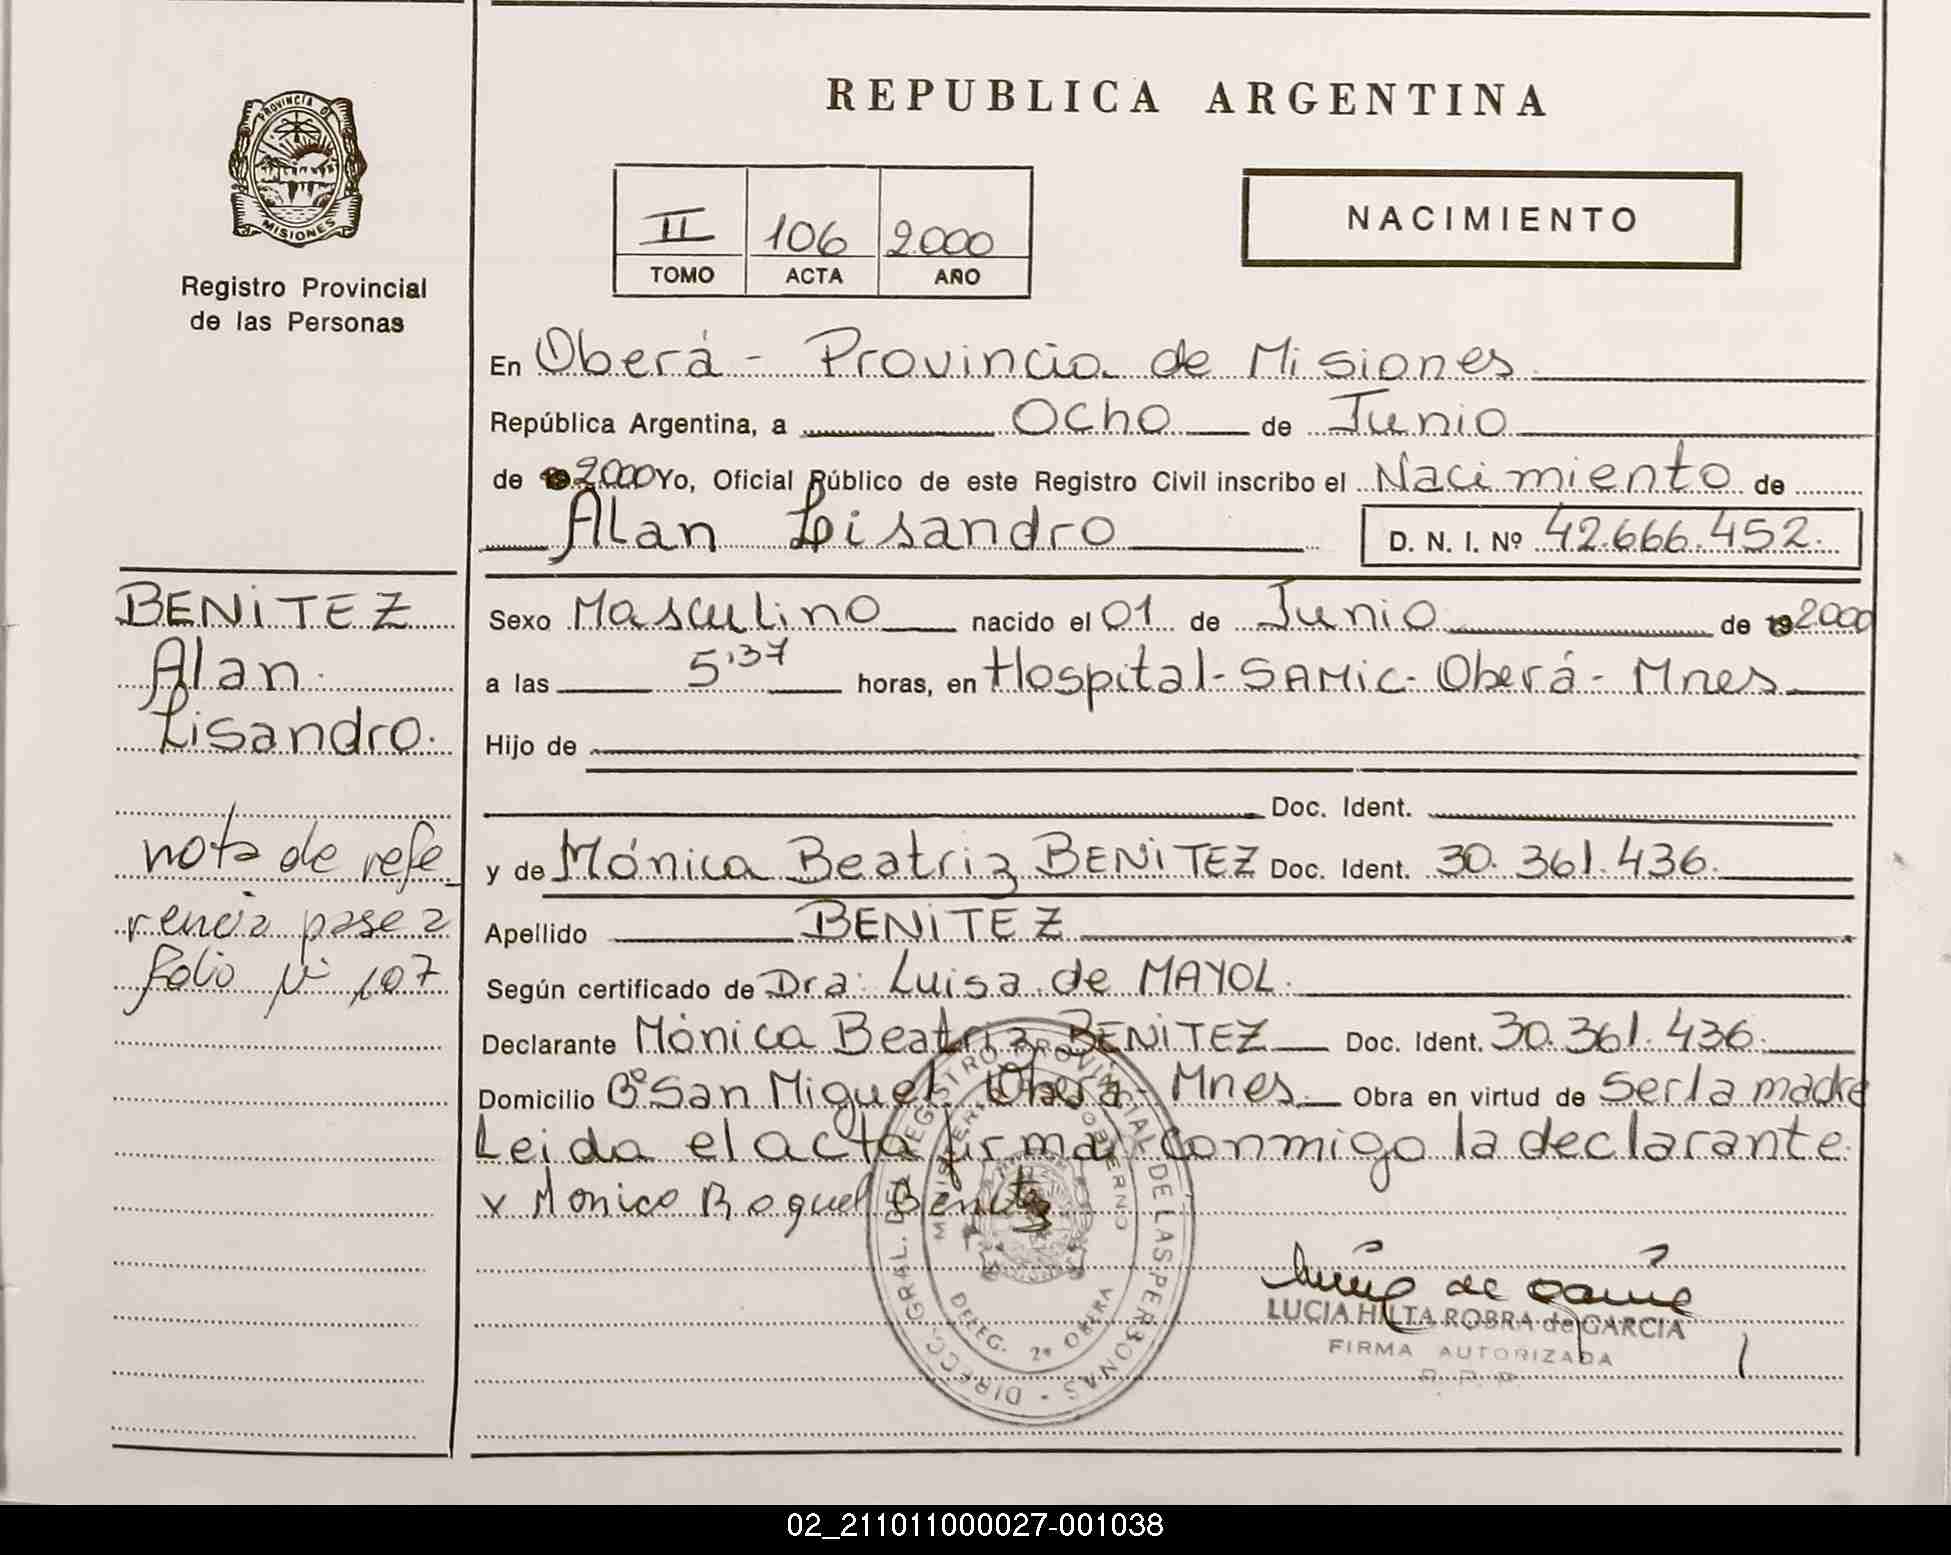 REPUBLICA ARGENTINA
PROVINCIA DE
MISIONES
Registro Provincial
de las Personas
II 106 2000
TOMO ACTA AÑO
NACIMIENTO
En Oberá - Provincia de Misiones
República Argentina, a Ocho de Junio
de 2000 Yo, Oficial Público de este Registro Civil inscribo el Nacimiento de
Alan Lisandro D. N. I. Nº 42.666.452.
BENITEZ
Alan
Lisandro.
nota de refe
rencia pase a
folio Nº 107
Sexo Masculino nacido el 01 de Junio de 2000
a las 5'37 horas, en Hospital-SAMIC- Oberá- Mnes
Hijo de
Doc. Ident.
y de Mónica Beatriz BENITEZ Doc. Ident. 30.361.436.
Apellido BENITEZ
Según certificado de Dra. Luisa de MAYOL.
Declarante Mónica Beatriz BENITEZ Doc. Ident. 30.361.436.
Domicilio Bº San Miguel Oberá- Mnes Obra en virtud de Ser la madre
Leida el acta firma conmigo la declarante.
x Monica Raquel Benitez
DIRECC. GRAL. DEL REGISTRO PROVINCIAL DE LAS PERSONAS
MINISTERIO GOBIERNO
DELEG. 2ª OBERA
LUCIA HILTA ROBRA de GARCIA
FIRMA AUTORIZADA
R. P. P.
02_211011000027-001038